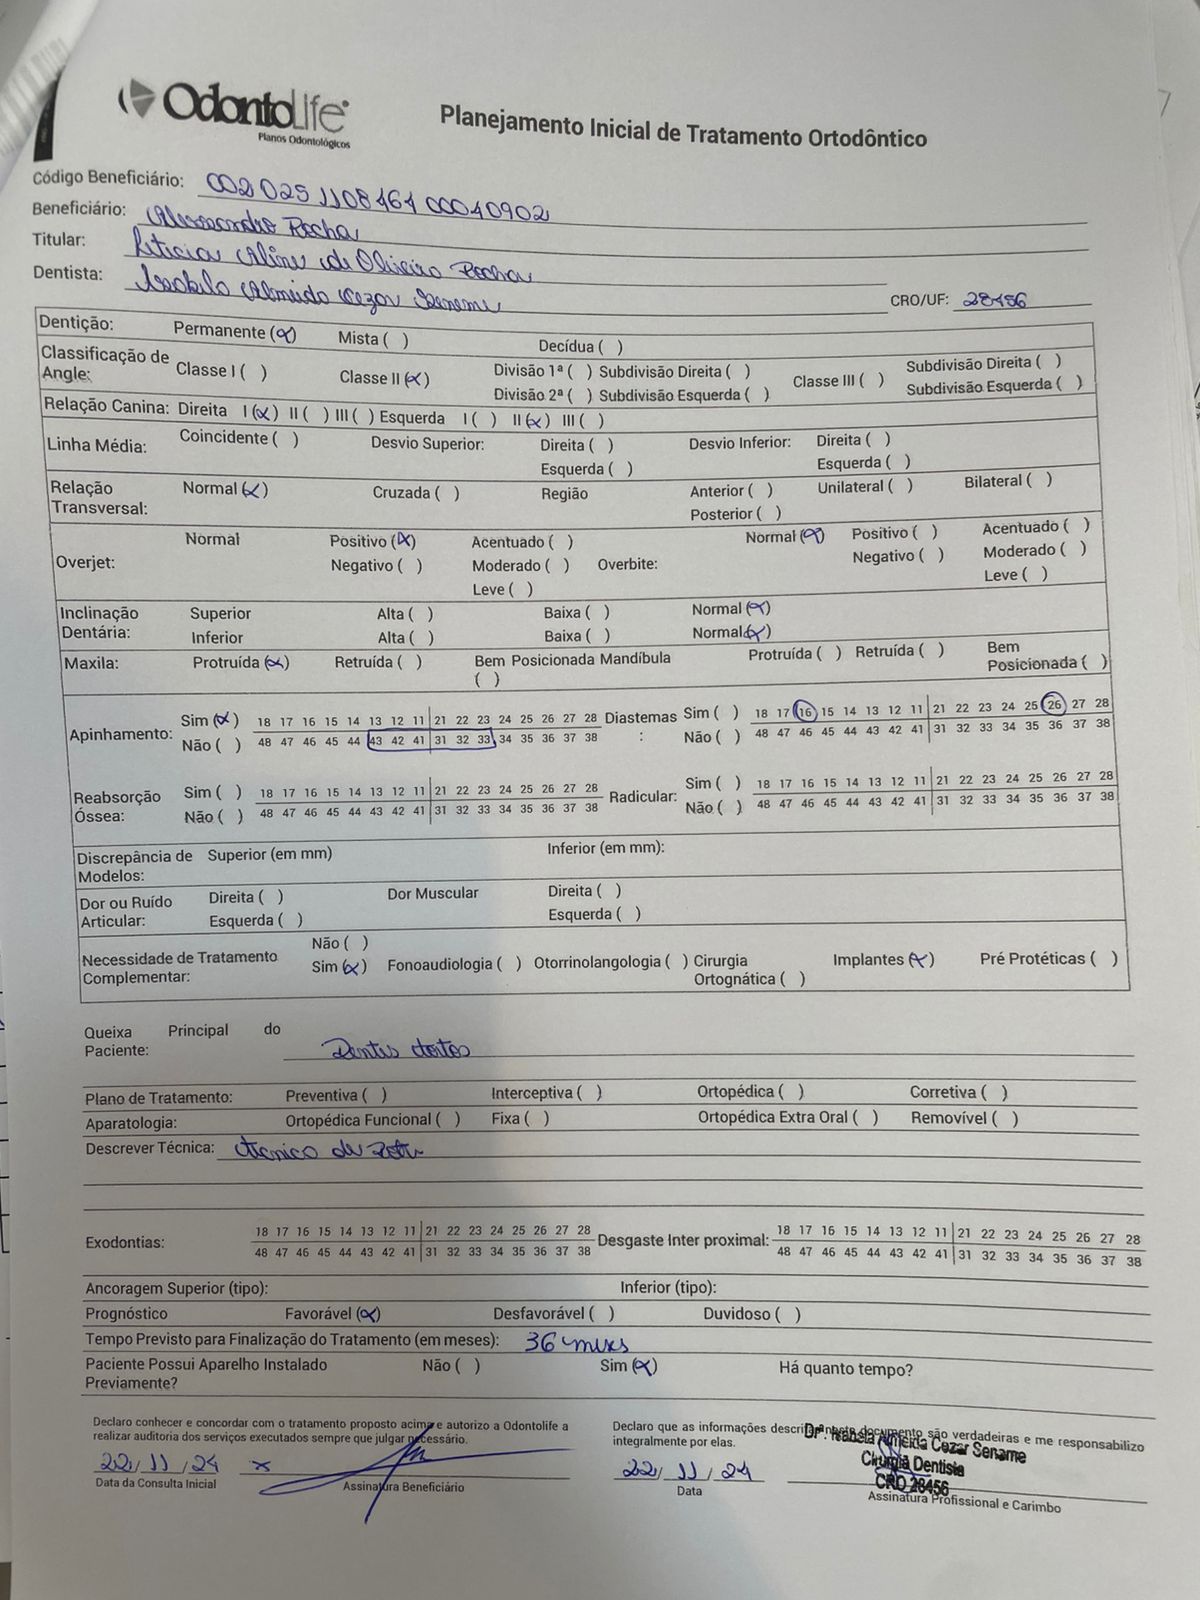 OdontoLife
Planos Odontológicos
Planejamento Inicial de Tratamento Ortodôntico
Código Beneficiário: 002 025 1108464 00040902
Beneficiário: Alessandro Rocha
Titular: Leticia Aline de Oliveira Rocha
Dentista: Isabela Almeida Cezar Sename CRO/UF: 28456
Dentição: Permanente (x) Mista ( ) Decídua ( )
Classificação de Angle: Classe I ( ) Classe II (x) Divisão 1ª ( ) Subdivisão Direita ( ) Classe III ( ) Subdivisão Direita ( )
Divisão 2ª ( ) Subdivisão Esquerda ( ) Subdivisão Esquerda ( )
Relação Canina: Direita I (x) II ( ) III ( ) Esquerda I ( ) II (x) III ( )
Linha Média: Coincidente ( ) Desvio Superior: Direita ( ) Desvio Inferior: Direita ( )
Esquerda ( ) Esquerda ( )
Relação Transversal: Normal (x) Cruzada ( ) Região Anterior ( ) Unilateral ( ) Bilateral ( )
Posterior ( )
Overjet: Normal Positivo (x) Acentuado ( ) Overbite: Normal (x) Positivo ( ) Acentuado ( )
Negativo ( ) Moderado ( ) Negativo ( ) Moderado ( )
Leve ( ) Leve ( )
Inclinação Dentária: Superior Alta ( ) Baixa ( ) Normal (x)
Inferior Alta ( ) Baixa ( ) Normal (x)
Maxila: Protruída (x) Retruída ( ) Bem Posicionada ( ) Mandíbula Protruída ( ) Retruída ( ) Bem Posicionada ( )
Apinhamento: Sim (x) 18 17 16 15 14 13 12 11 21 22 23 24 25 26 27 28 Diastemas : Sim ( ) 18 17 16 15 14 13 12 11 21 22 23 24 25 26 27 28
Não ( ) 48 47 46 45 44 43 42 41 31 32 33 34 35 36 37 38 Não ( ) 48 47 46 45 44 43 42 41 31 32 33 34 35 36 37 38
Reabsorção Óssea: Sim ( ) 18 17 16 15 14 13 12 11 21 22 23 24 25 26 27 28 Radicular: Sim ( ) 18 17 16 15 14 13 12 11 21 22 23 24 25 26 27 28
Não ( ) 48 47 46 45 44 43 42 41 31 32 33 34 35 36 37 38 Não ( ) 48 47 46 45 44 43 42 41 31 32 33 34 35 36 37 38
Discrepância de Modelos: Superior (em mm) Inferior (em mm):
Dor ou Ruído Articular: Direita ( ) Dor Muscular Direita ( )
Esquerda ( ) Esquerda ( )
Necessidade de Tratamento Complementar: Não ( )
Sim (x) Fonoaudiologia ( ) Otorrinolangologia ( ) Cirurgia Ortognática ( ) Implantes (x) Pré Protéticas ( )
Queixa Principal do Paciente: Dentes tortos
Plano de Tratamento: Preventiva ( ) Interceptiva ( ) Ortopédica ( ) Corretiva ( )
Aparatologia: Ortopédica Funcional ( ) Fixa ( ) Ortopédica Extra Oral ( ) Removível ( )
Descrever Técnica: tecnica de
Exodontias: 18 17 16 15 14 13 12 11 21 22 23 24 25 26 27 28 Desgaste Inter proximal: 18 17 16 15 14 13 12 11 21 22 23 24 25 26 27 28
48 47 46 45 44 43 42 41 31 32 33 34 35 36 37 38 48 47 46 45 44 43 42 41 31 32 33 34 35 36 37 38
Ancoragem Superior (tipo): Inferior (tipo):
Prognóstico Favorável (x) Desfavorável ( ) Duvidoso ( )
Tempo Previsto para Finalização do Tratamento (em meses): 36 meses
Paciente Possui Aparelho Instalado Previamente? Não ( ) Sim (x) Há quanto tempo?
Declaro conhecer e concordar com o tratamento proposto acima e autorizo a Odontolife a
realizar auditoria dos serviços executados sempre que julgar necessário.
22/11/24 x
Data da Consulta Inicial Assinatura Beneficiário
Declaro que as informações descritas neste documento são verdadeiras e me responsabilizo
integralmente por elas.
Drª. Isabela Almeida Cezar Sename
Cirurgiã Dentista
CRO 28456
22/11/24
Data Assinatura Profissional e Carimbo